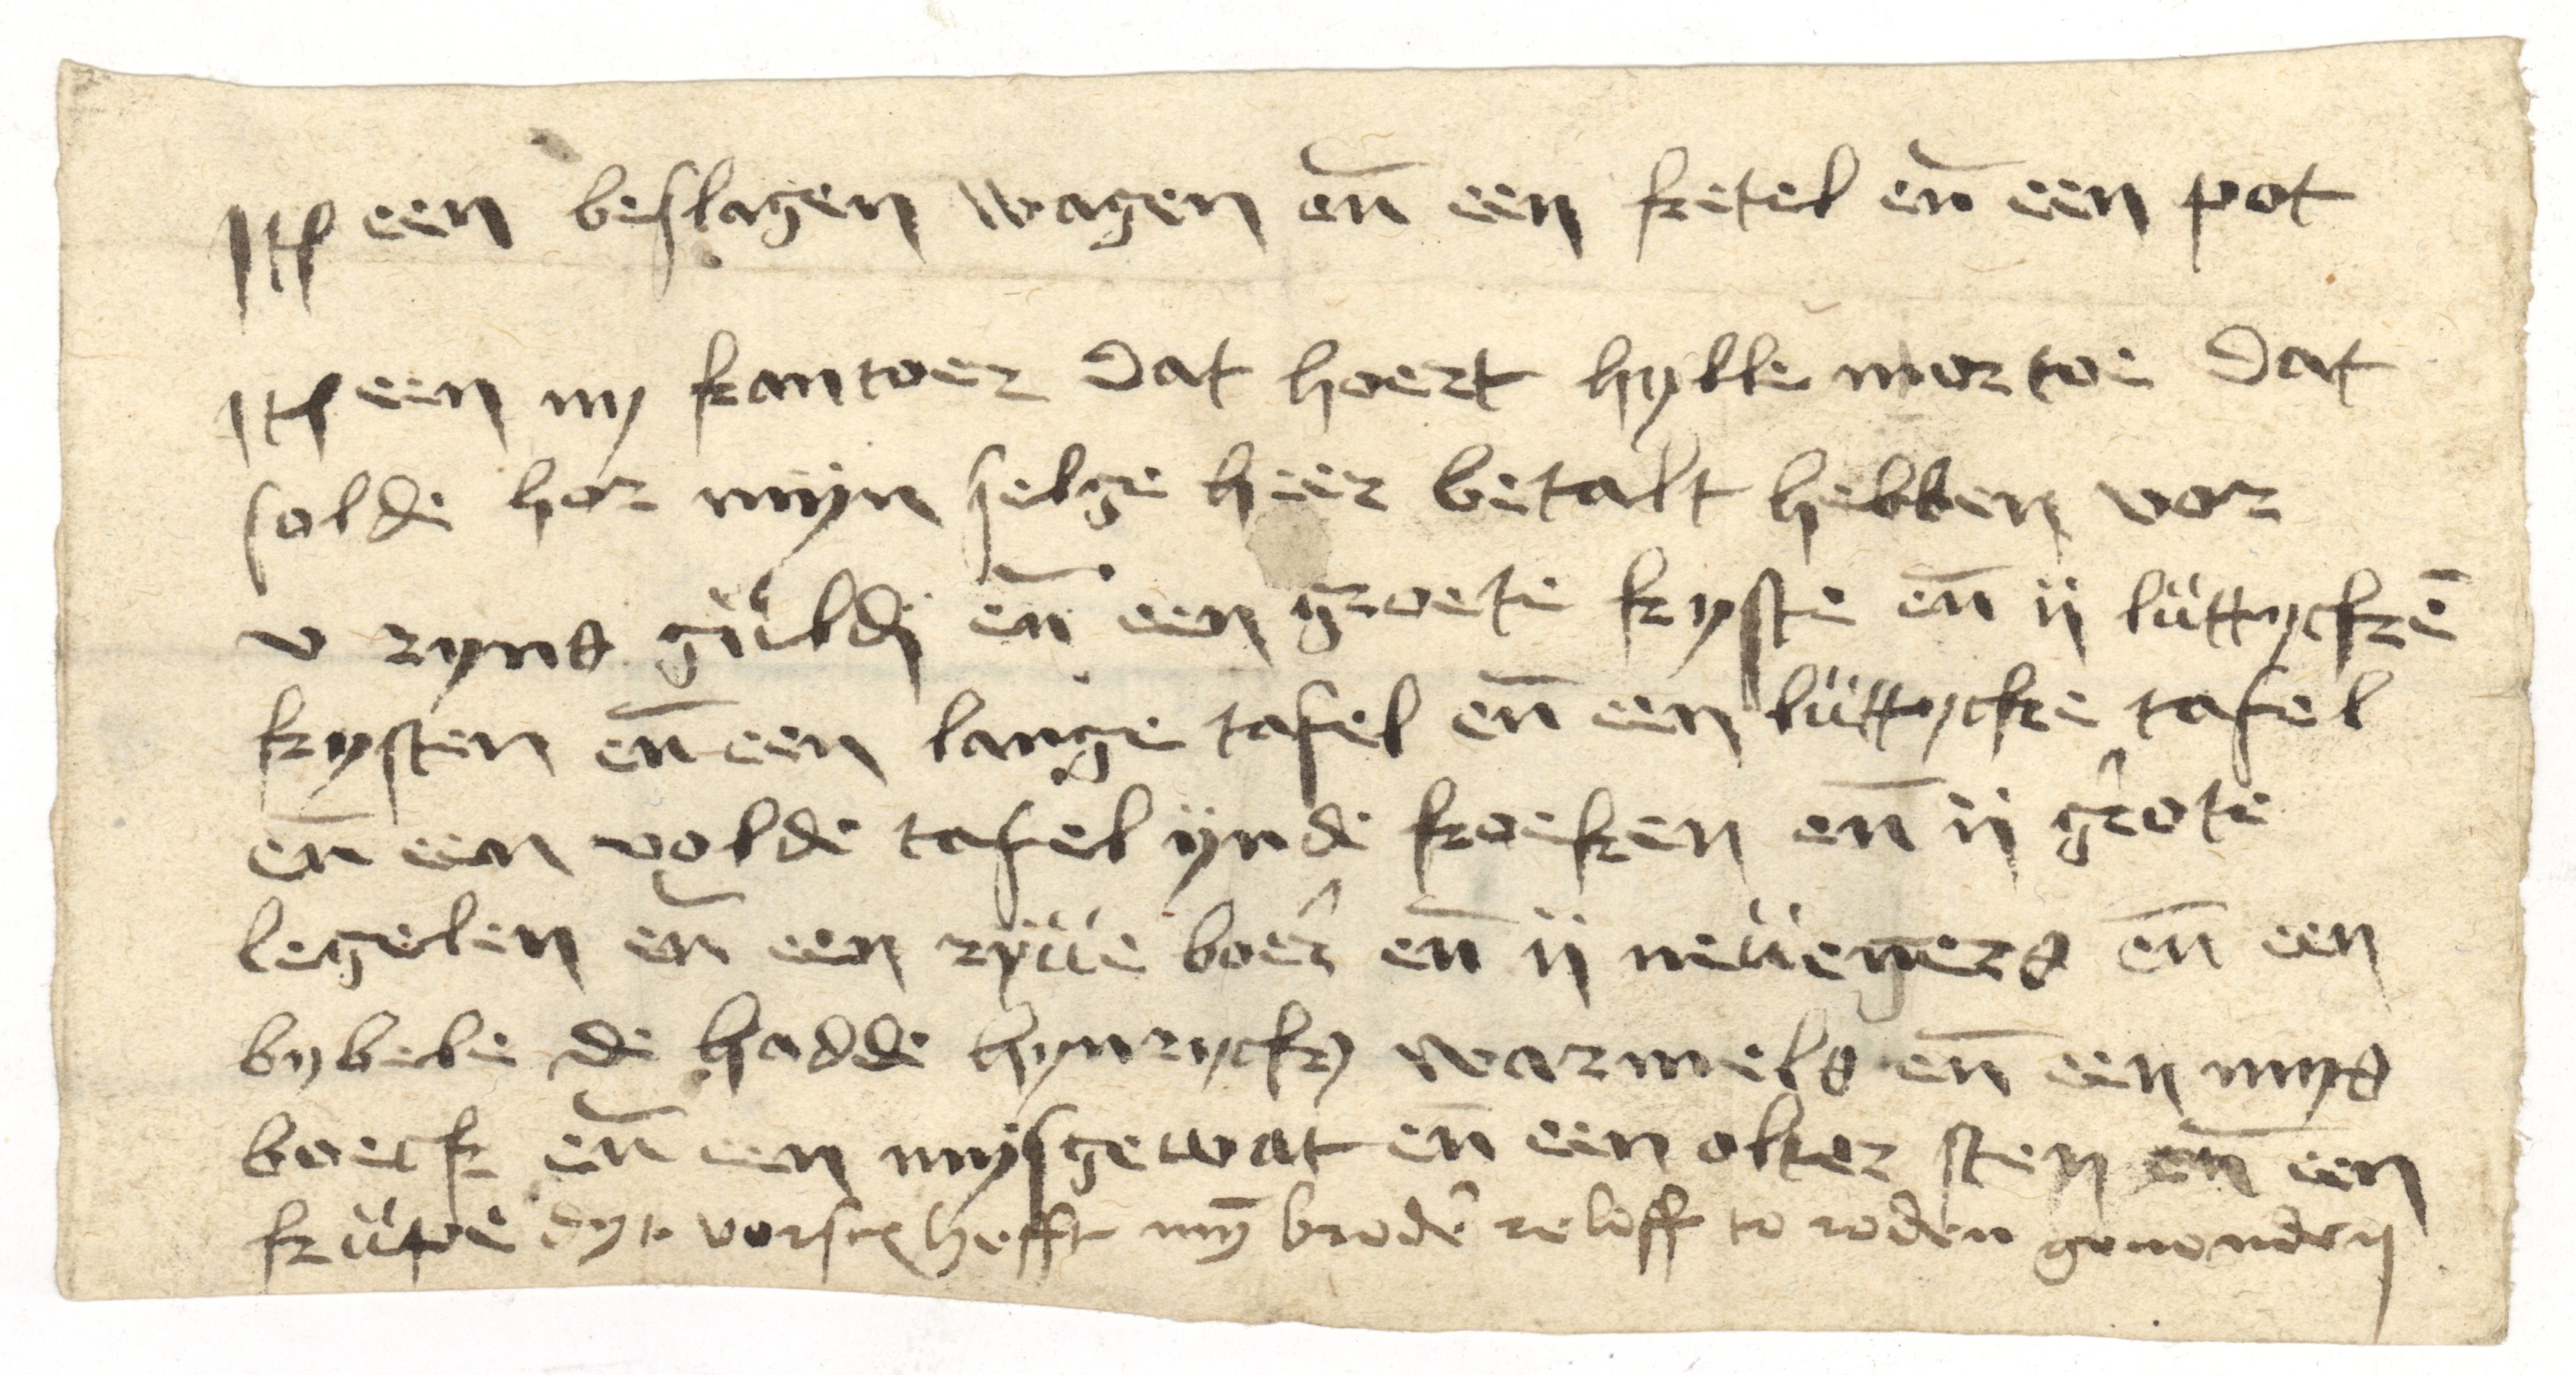 Itē een beslagen wagen en̄ een ketel en̄ een pot
Itē een ny kantoer dat hoert hylle mor toe dat
solde hor mijn selge heer betalt hebben vor
v ryns güldē en̄ een groete kyste en̄ ij lüttyckē
kysten en̄ een lange tafel en̄ een lüttycke tafel
en̄ een volde tafel ijnde koeken en̄ ij grote
legelen en̄ een ryüe boer en̄ ij neüegers en̄ een
bybele de hadde hynryck warmels en̄ een mys
boeck en̄ een mijsgewat en̄ een olter sten en̄ een
küpe dyt vorscr hefft mȳ broder roloff to roden gevonden